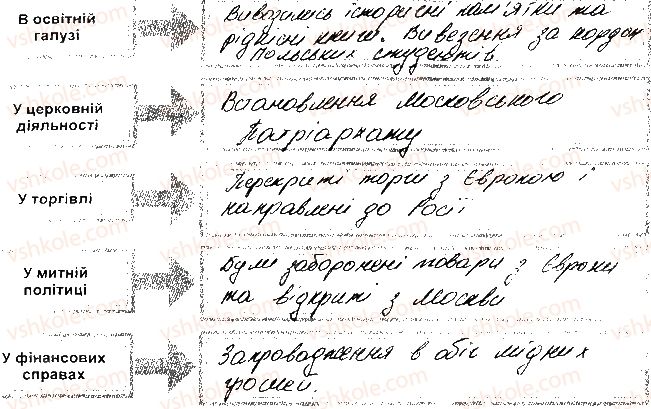 В освітній
галузі
Вивозились історисні пам'ятки та
рідкісні книги. Вивезення за кордон
Польських студентів.
У церковній
діяльності
Встановлення Московського
Патріаркату
У торгівлі
Перекриті торги з Європою і
направлені до Росії
У митній
політиці
Були заборонені товари з Європи
та відкриті з Москви
У фінансових
справах
Запровадження в обіг мідних
грошей.